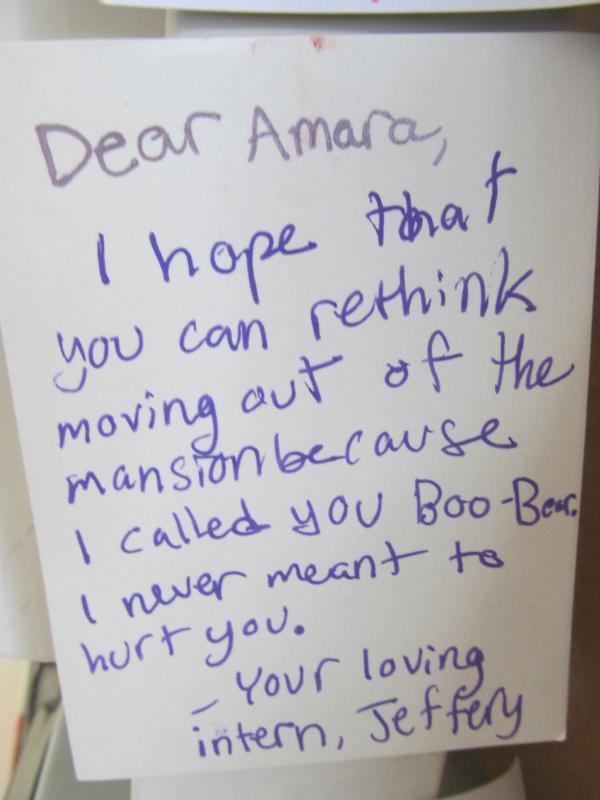 Dear Amara,
I hope that
you can rethink
moving out of the
mansion because
I called you Boo-Bear.
I never meant to
hurt you.
- Your loving
intern, Jeffery